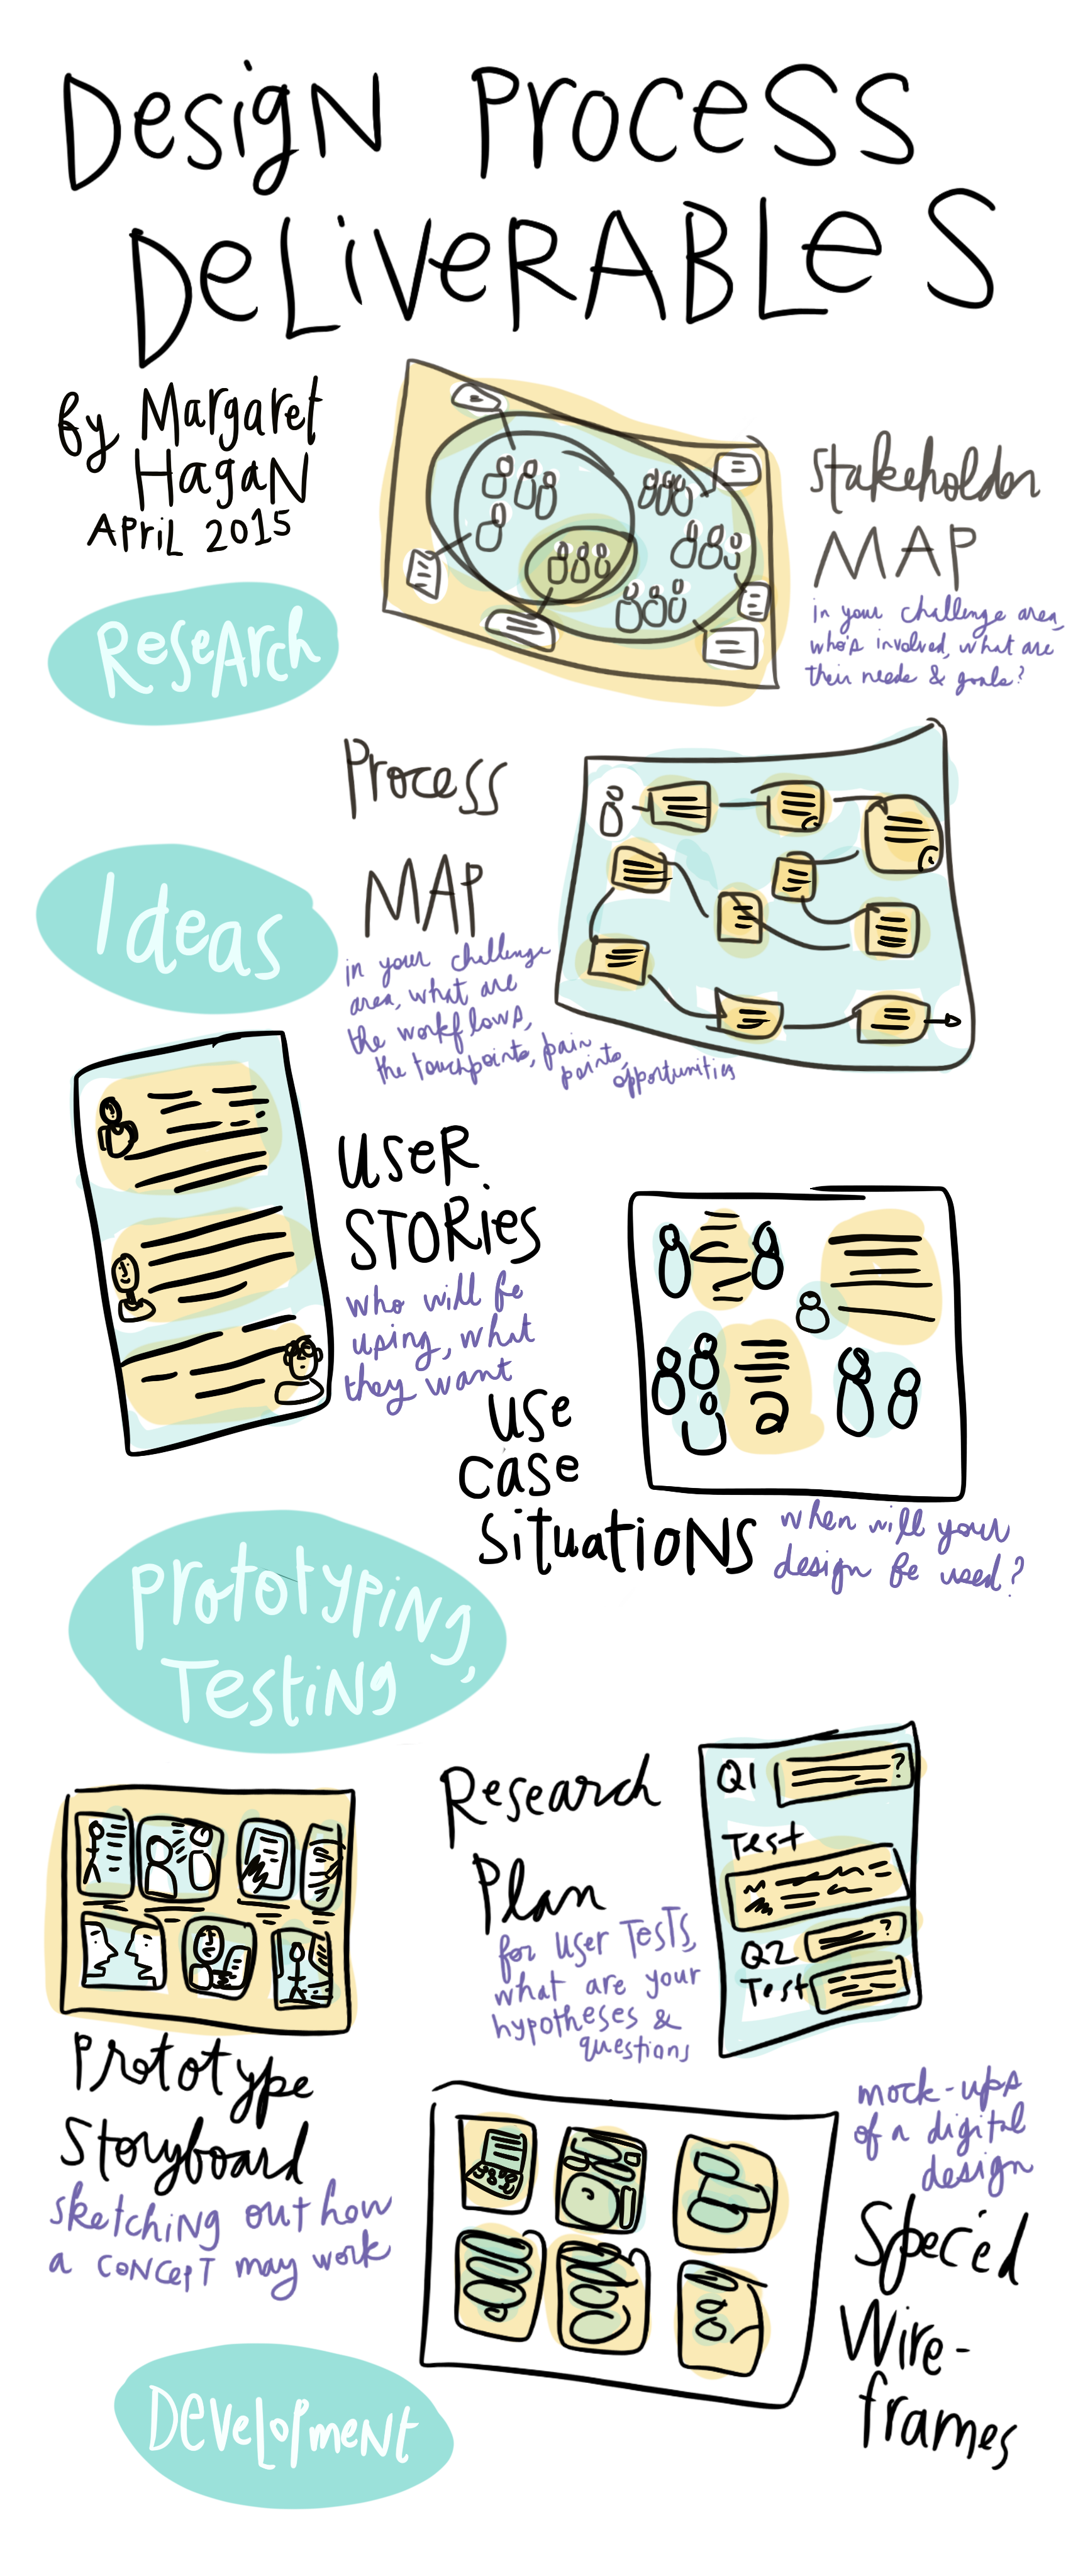 Design Process
Deliverables
By Margaret
Hagan
April 2015
Stakeholder
Map
in your challenge area,
who's involved, what are
their needs & goals?
Research
Process
Map
in your challenge
area, what are
the workflows,
the touchpoints, pain
points,
opportunities
Ideas
User
Stories
who will be
using, what
they want
Use
Case
Situations
when will your
design be used?
2
Prototyping,
Testing
Research
Plan
for user tests,
what are your
hypotheses &
questions
Q1
?
Test
Q2
?
Test
Prototype
Storyboard
sketching out how
a concept may work
mock-ups
of a digital
design
Spec'ed
Wire-
frames
Development